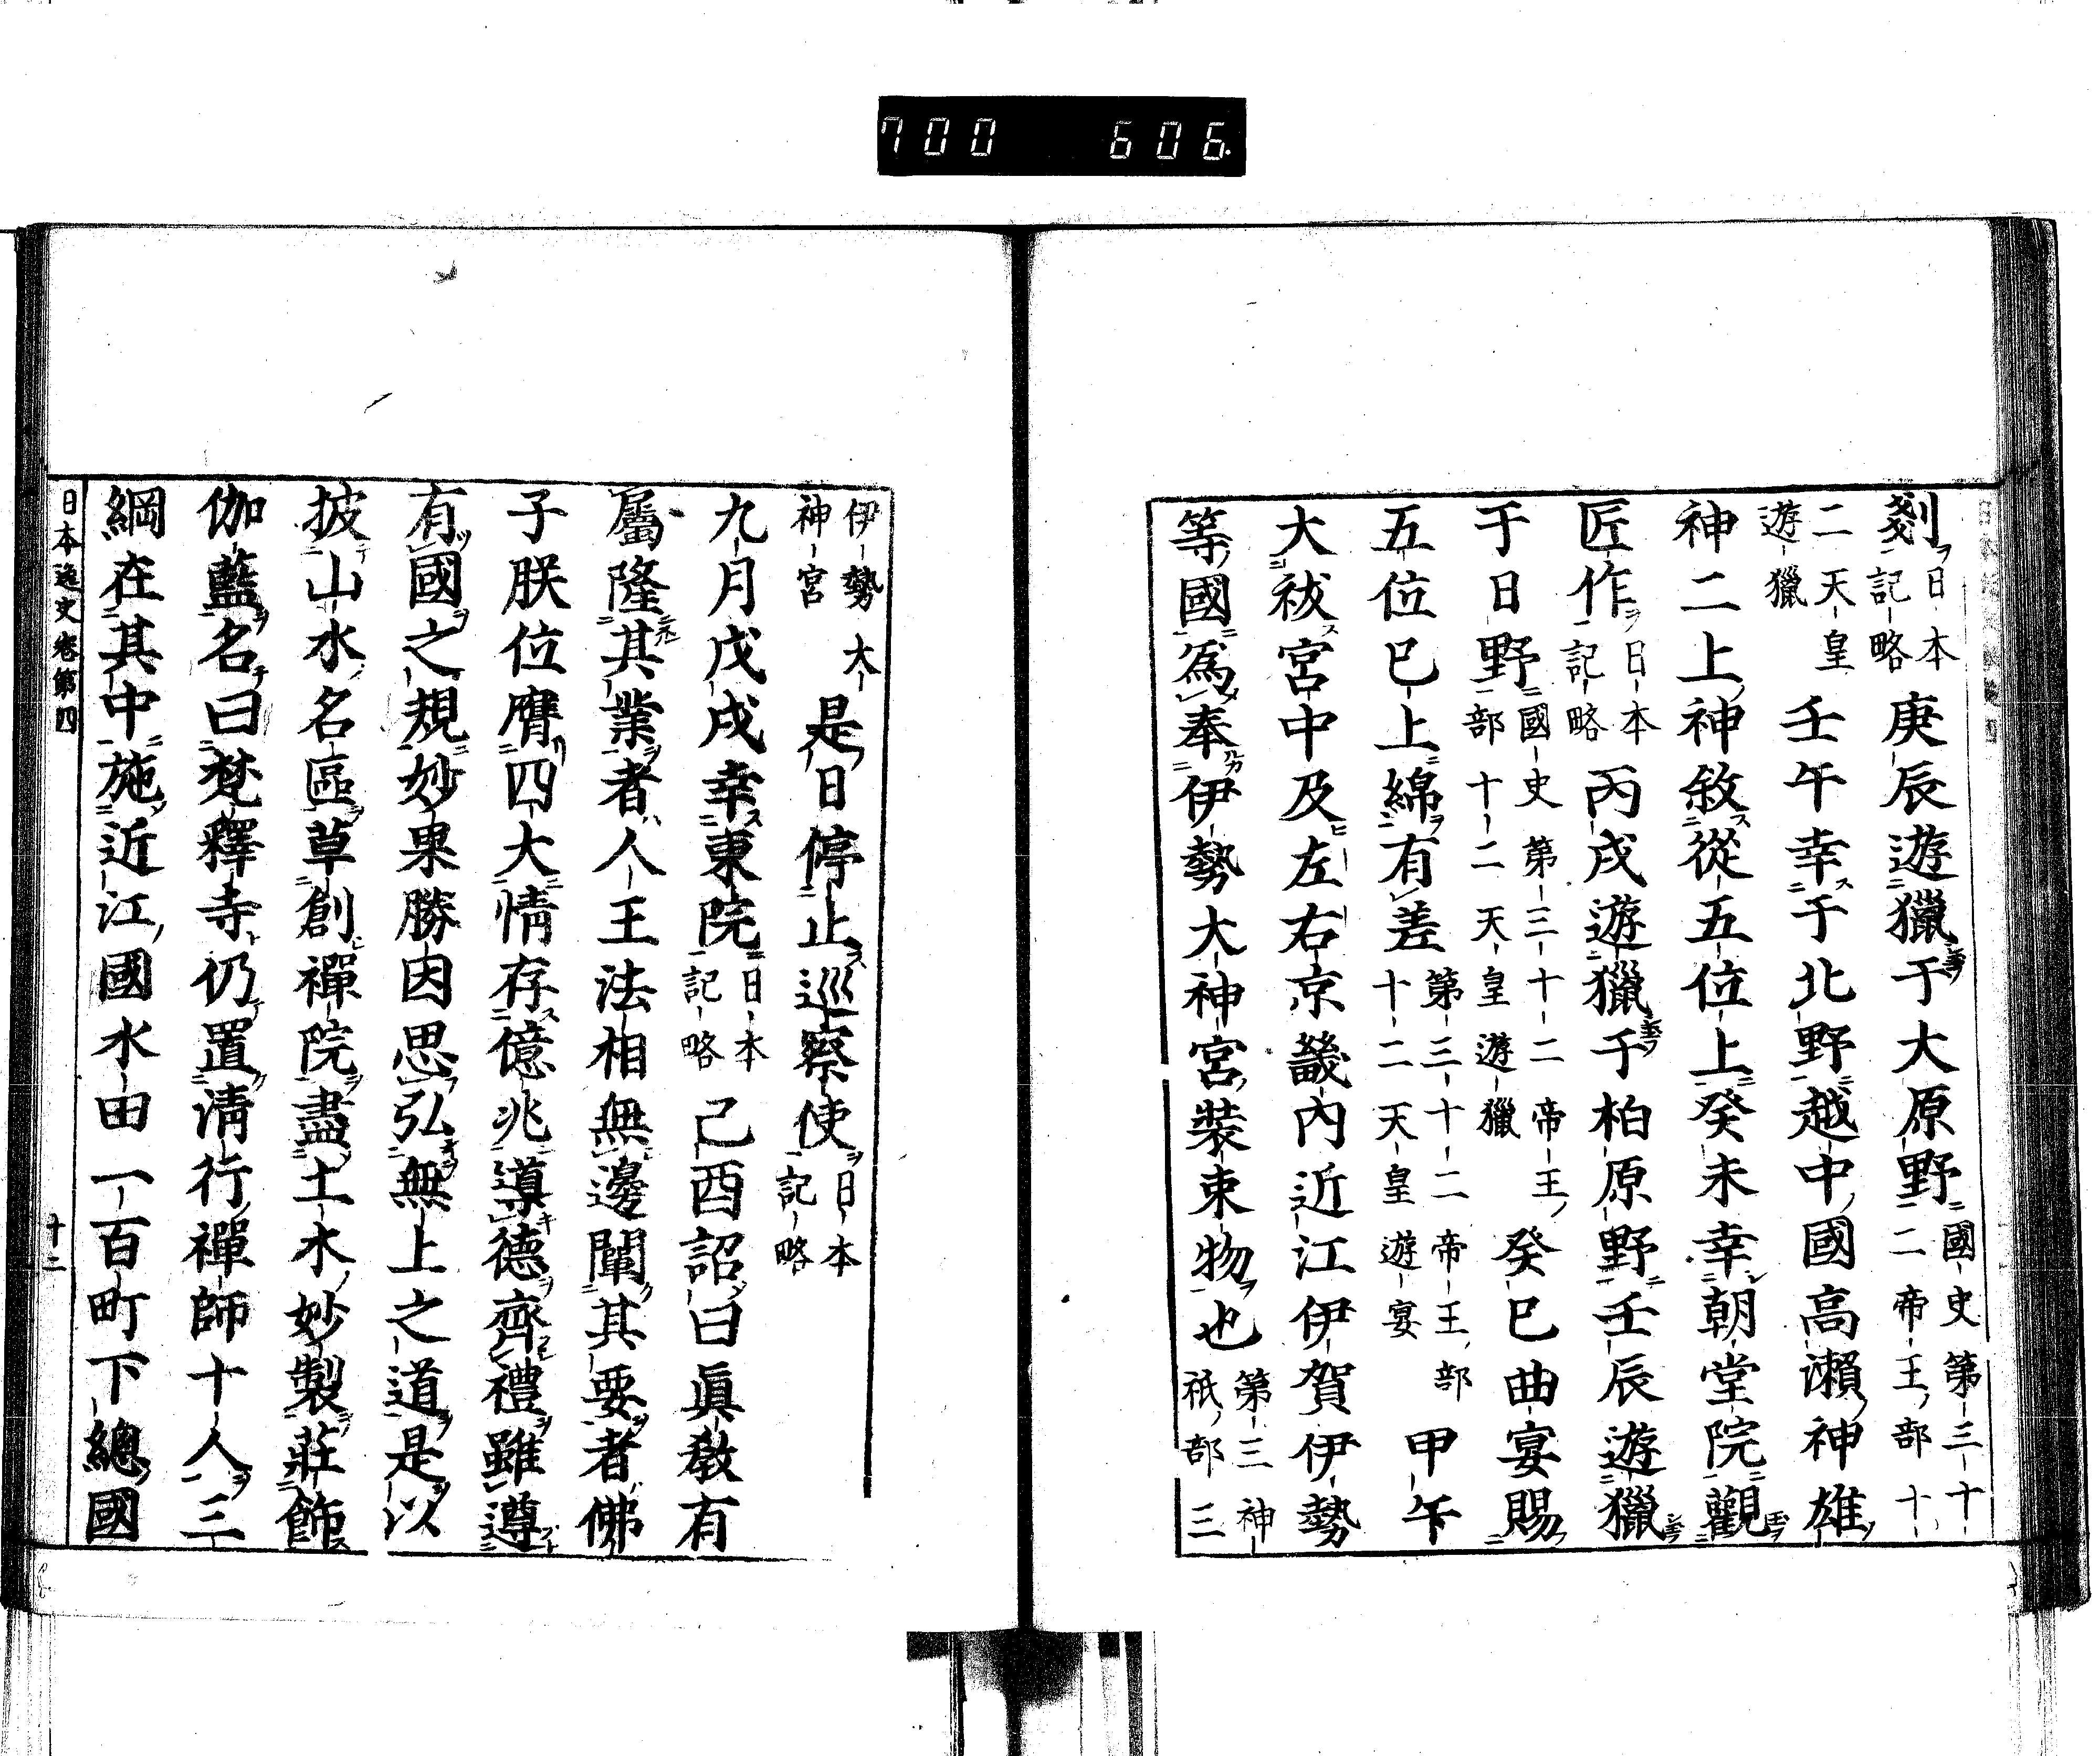 700 606
剗日本記略庚辰遊獵于大原野國史第三十二帝王部十
二天皇遊獵壬午幸于北野越中國高瀨神雄
神二上神敘從五位上癸未幸朝堂院觀
匠作日本記略丙戌遊獵于柏原野壬辰遊獵
于日野國史第三十二帝王部十二天皇遊獵癸巳曲宴賜
五位已上綿有差第三十二帝王部十二天皇遊宴甲午
大祓宮中及左右京畿內近江伊賀伊勢
等國爲奉伊勢大神宮裝束物也第三神祇部三
伊勢大神宮是日停止巡察使日本記略
九月戊戌幸東院日本記略己酉詔曰眞敎有
屬隆其業者人王法相無邊闡其要者佛
子朕位膺四大情存億兆導德齊禮雖遵
有國之規妙果勝因思弘無上之道是以
披山水名區草創禪院盡土木妙製莊飾
伽藍名曰梵釋寺仍置淸行禪師十人三
綱在其中施近江國水田一百町下總國
日本逸史卷第四 十二